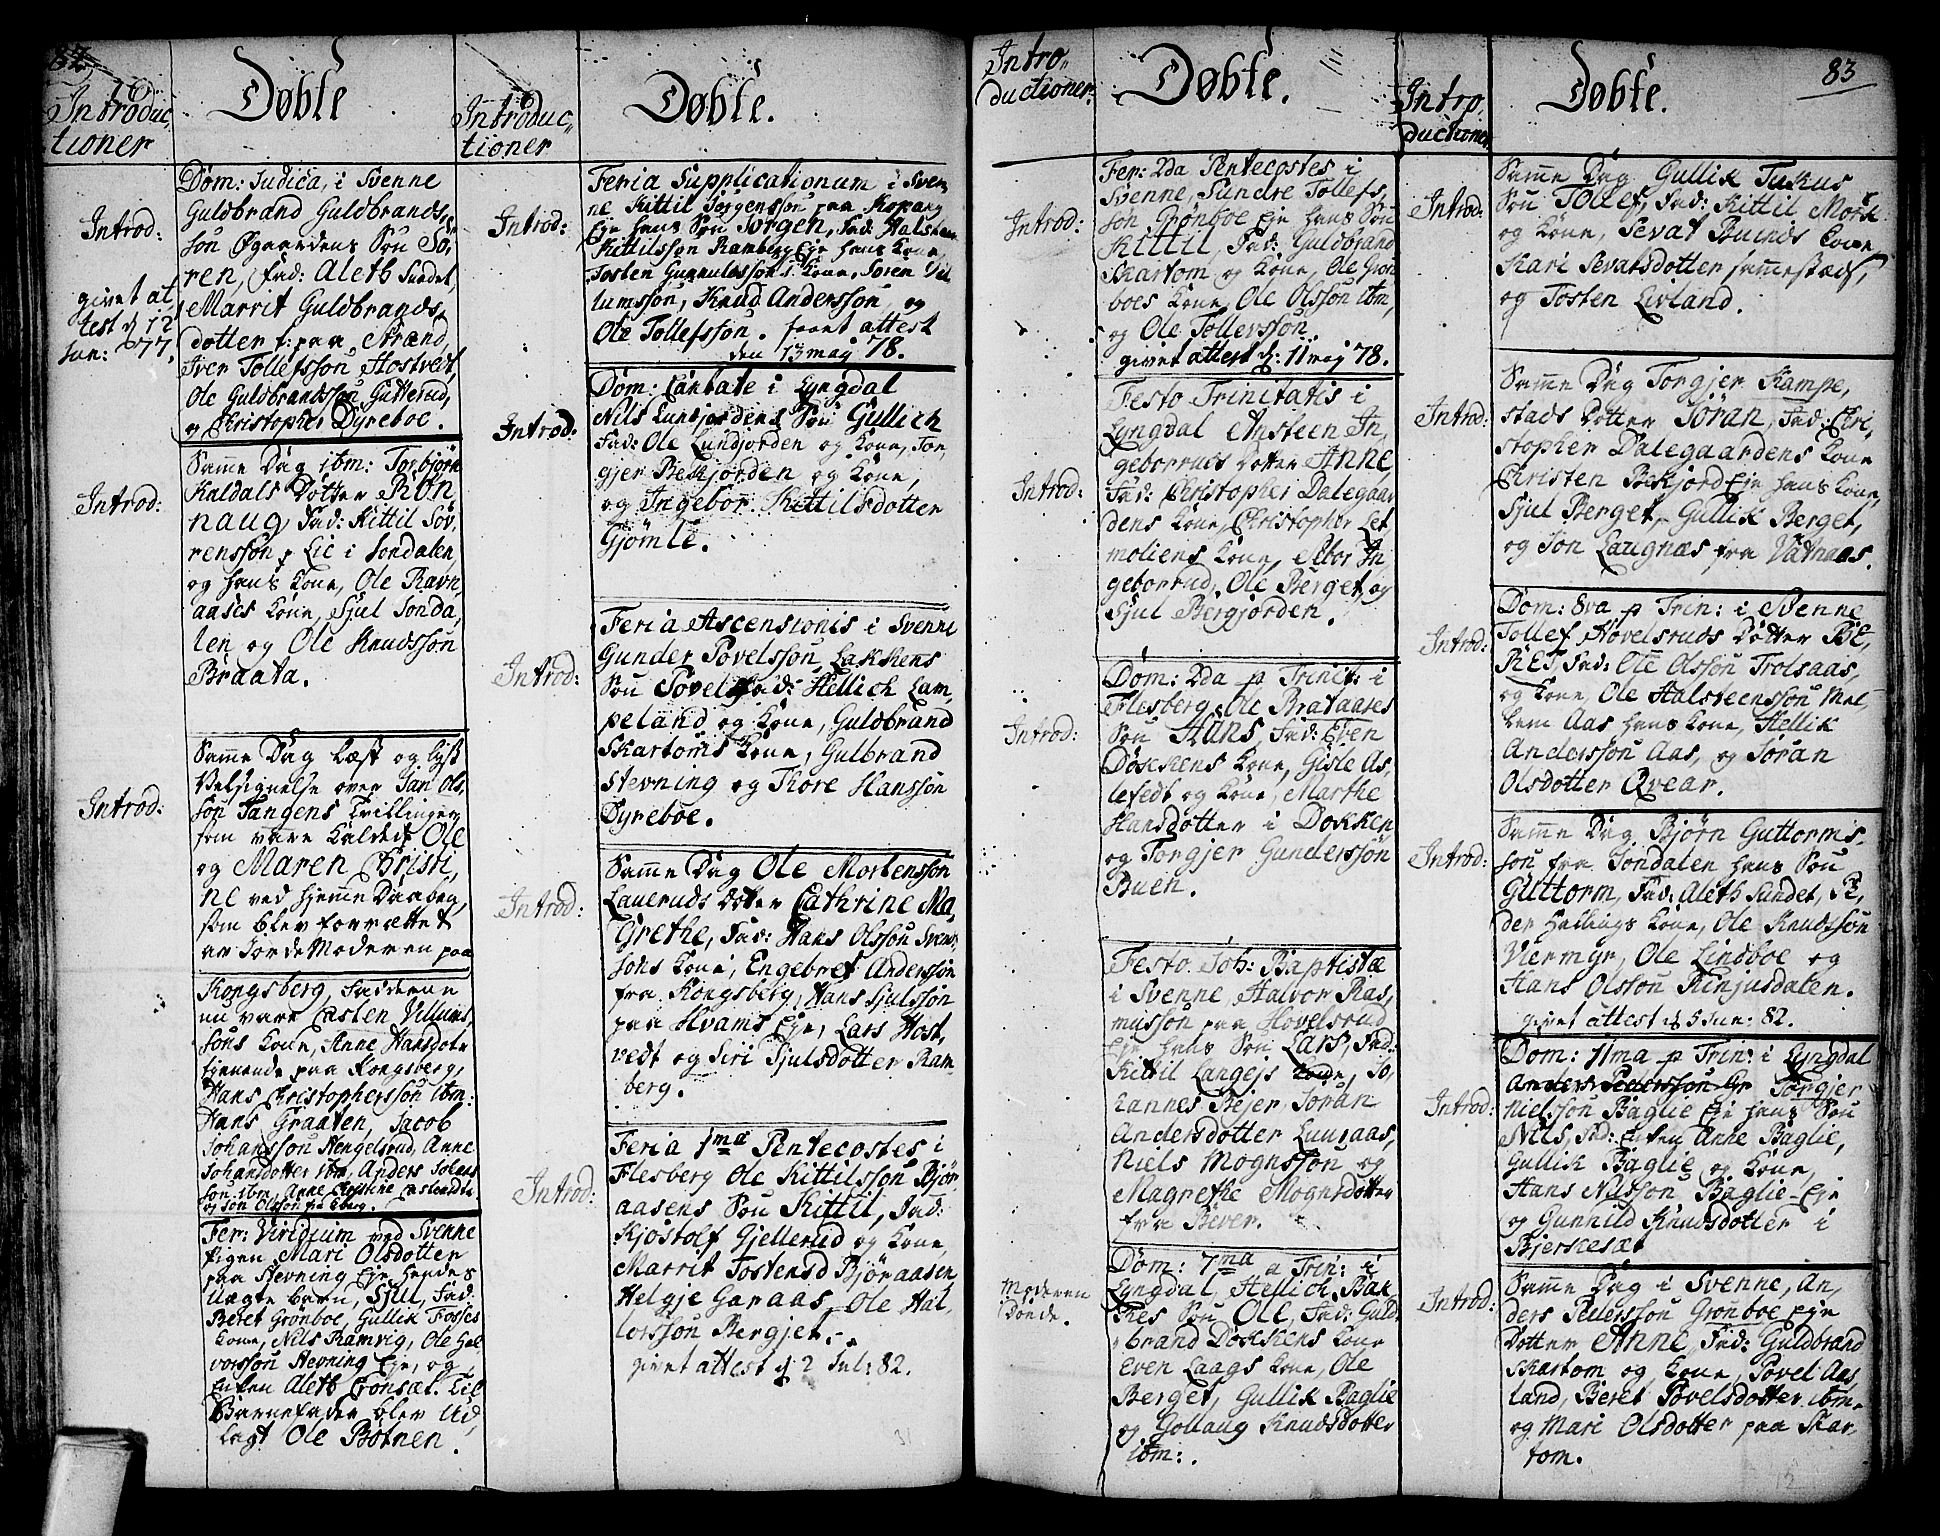 82
Introduc-
tioner
Døbte
Introd:
givet at
test d 12
Jun: 77.
Dom: Judica, i Svenne
Guldbrand Guldbrands-
søn Øgaardens Søn Sø-
ren, Fad: Aleth Sundet,
Marrit Guldbrands-
dotter f: paa Strand,
Iver Tollefssøn Hostvedt,
Ole Guldbrandssøn Gutterud,
og Christopher Dyreboe.
Introd:
Samme Dag ibm: Torbjørn
Kaldals Dotter Røn
naug, Fad: Kittil Søv-
renssøn p Lie i Jondalen
og hans Kone, Ole Ravn
aases Kone, Sjul Jonda-
len og Ole Knudssøn
Braata.
Introd:
Samme Dag Læst og lyst
Velsignelse over Jan Ols-
søn Tangens Tvillinger
som vare kaldede Ole
og Maren Christi-
ne ved hjemme Daaben,
som blev forrættet
av Jorde Moderen paa
Kongsberg, Fadderne
nu vare Casten Villums-
søns Kone, Anne Hansdotr
tjenende paa Kongsberg,
Hans Christophersson ibm:
Hans Graaten, Jacob
Johanssøn Hengelsrud, Anne
Johansdotter ibm, Anders Joens
søn ibm, Anne Christine Castensdtr
og Jon Olssøn fra Kberg.
Fer: Viridium ved Svenne
Pigen Mari Olsdotter
paa Stevning Eje hendes
Uægte barn, Sjul, Fad:
Beret Grønboe, Gullik Fosses
Kone, Nils Ramvig, Ole Hal
vorssøn Stevning Eje, og
Enken Aleth Tronsæt. Til
Barnefader blev Ud-
lagt Ole Botnen.
Introduc-
tioner
Døbte.
Introd:
Feria Supplicationum i Sven-
ne Kittil Jørgenssøn paa Kopang
Eje hans Søn Jørgen, Fad: Halsteen
Kittilssøn Ramberg Eje hans Kone,
Tosten Gunnulfssøns Kone, Søren Vil
lumssøn, Knud Anderssøn, og
Ole Tollefssøn. givet attest
den 13 maj 78.
Introd:
Dom: Cantate i Lyngdal
Nils Lundjordens Søn Gullich
Fad: Ole Lundjorden og Kone, Tor
gjer Bekjorden og Kone,
og Ingebor Kittilsdotter
Gjømle.
Introd:
Feria Ascensionis i Svenne
Gunder Povelssøn Lakkens
Søn Povel Fad: Hellich Lam-
peland og Kone, Guldbrand
Skartoms Kone, Gulbrand
Stevning og Thore Hanssøn
Dyreboe.
Introd:
Samme Dag Ole Mortenssøn
Laveruds Dotter Cathrine Ma-
Grethe, Fad: Hans Olssøn Svens-
søns Kone, Engebret Anderssøn
fra Kongsberg, Hans Sjulssøn
paa Hvams Eje, Lars Host-
vedt og Siri Sjulsdotter Ram-
berg.
Introd:
Feria 1ma Pentecostes i
Flesberg Ole Kittilssøn Bjør
aasens Søn Kittil, Fad:
Kjøstolf Gjellerud og Kone
Marrit Tostensd Bjøraasen,
Helgje Garaas, Ole Hal-
lorssøn Bergjet.
givet attest d 2 Jul: 82.
Intro-
ductioner.
Døbte.
Introd:
Fer: 2da Pentecostes i
Svenne, Sundre Tollefs-
søn Grønboe Eje hans Søn
Kittil, Fad: Guldbrand
Skartom og Kone, Ole Grøn
boes Kone, Ole Olssøn ibm,
og Ole Tollevssøn.
givet attest d: 11 maj 78.
Introd:
Festo Trinitatis i
Lyngdal Ansteen In-
geborruds Dotter Anne,
Fad: Christopher Dalegaar
dens Kone, Christopher Let
moliens Kone, Sebor In-
geborrud, Ole Berget og
Sjul Bergjorden.
Introd:
Dom: 2da p Trinit: i
Flesberg Ole Brataases
Søn Hans, Fad: Even
Dokkens Kone, Gisle As-
lefedt og Kone, Marthe
Hansdotter i Dokken
og Torgjer Gunderssøn
Buen.
Festo Joh: Baptistæ
i Svenne, Halvor Ras-
mussøn paa Hovelsrud
Eje hans Søn Lars, Fad:
Kittil Langejs Kone, Jo-
hannes Bejer, Joran
Andersdotter Luuraas,
Niels Mognssøn og
Magrethe Mognsdotter
fra Bever.
Moderen
Døede.
Dom: 7ma a Trin: i
Lyngdal, Hellich Bak
kes Søn Ole, Fad: Guld-
brand Dokkens Kone
Even Laags Kone, Ole
Berget, Gullik Baglie
og Gollaug Knudsdotter
ibm:.
Intro-
ductioner
Døbte.
83
Introd:
Samme Dag Gullik Tukus
Søn Tollef, Fad: Kittil Mørk
og Kone, Sevat Buinds Kone
Kari Sevatsdotter sammestæds,
og Tosten Livland.
Introd:
Samme Dag Torgjer Kampe-
stads Dotter Jøran, Fad: Chri-
stopher Dalegaardens Kone
Christen Bekjord Eje hans Kone,
Sjul Berget, Gullik Berget,
og Jon Laugnæs fra Vatnaas.
Introd:
Dom: 8va p Trin: i Svenne
Tollef Hovelsruds Dotter Be-
ret, Fad: Ole Olssøn Trolsaas,
og Kone, Ole Halsteenssøn Mel-
lem Aas hans Kone, Hellik
Anderssøn Aas, og Joran
Olsdotter Qvear.
Introd:
Samme Dag Bjørn Guttorms-
søn fra Jondalen hans Søn
Guttorm, Fad: Aleth Sundet, Pe-
der Hellings Kone, Ole Knudssøn
Viermyr, Ole Lindboe og
Hans Olssøn Rinjusdalen.
givet attest d 5 Jun: 82.
Introd:
Dom: 11ma p Trin: i Lyngdal
Anders Pederssøn Gr Torgjer
Nielssøn Baglie Eje hans Søn
Nils, Fad: Enken Anne Baglie,
Gullik Baglie og Kone,
Hans Nilssøn Baglie Eje
og Gunhild Knudsdotter i
Bjerkesæt
Introd:
Samme Dag i Svenne, An-
ders Pederssøn Grønboe Eje
Dotter Anne, Fad: Guldbrand
Skartom og Kone, Povel Aas-
land, Beret Povelsdotter ibm.
og Mari Olsdotter paa Skar-
tom.